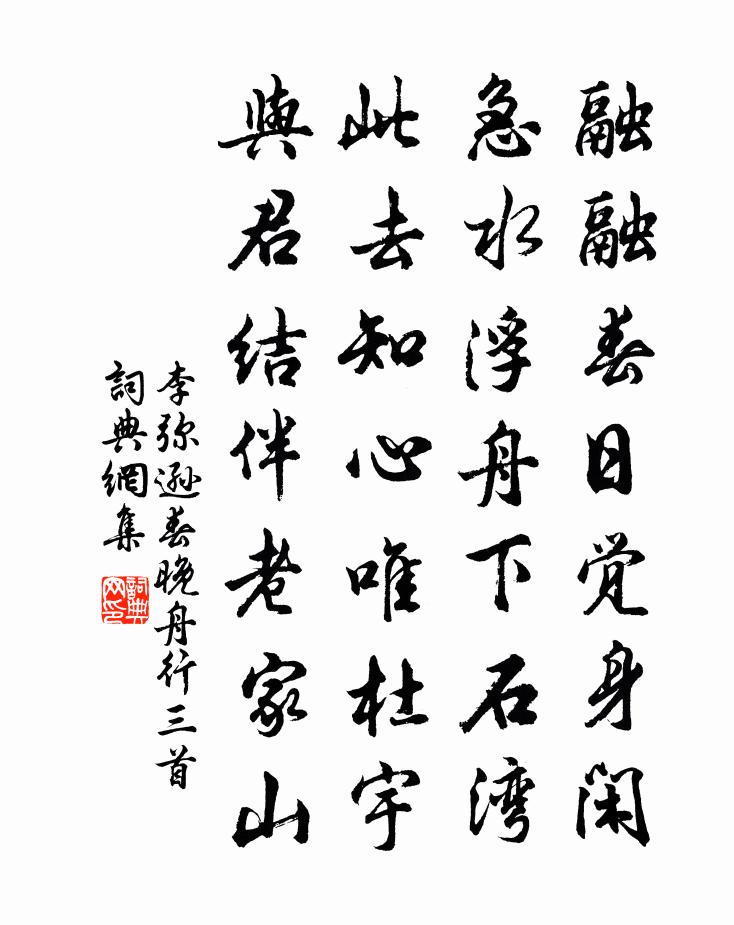 融融春日觉身闲
急水浮舟下石湾
此去知心唯杜宇
與君结伴老家山
李弥遜春晚舟行三首
詞典網集
詞典網印